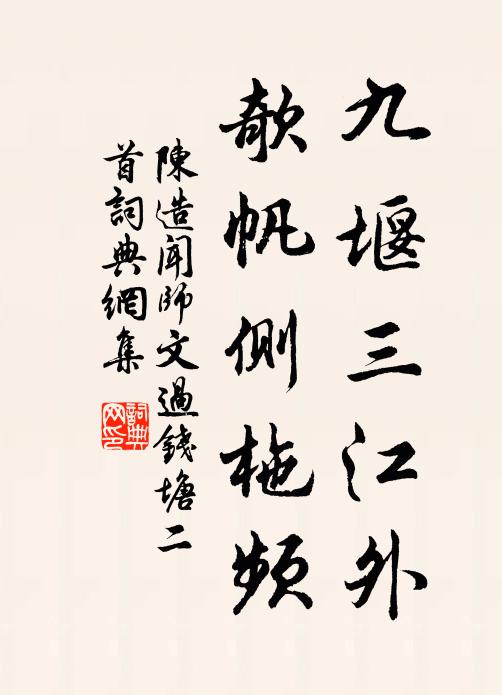 九堰三江外
欹帆側柂頻
陳造聞師文過錢塘二
首詞典網集
詞典
网印